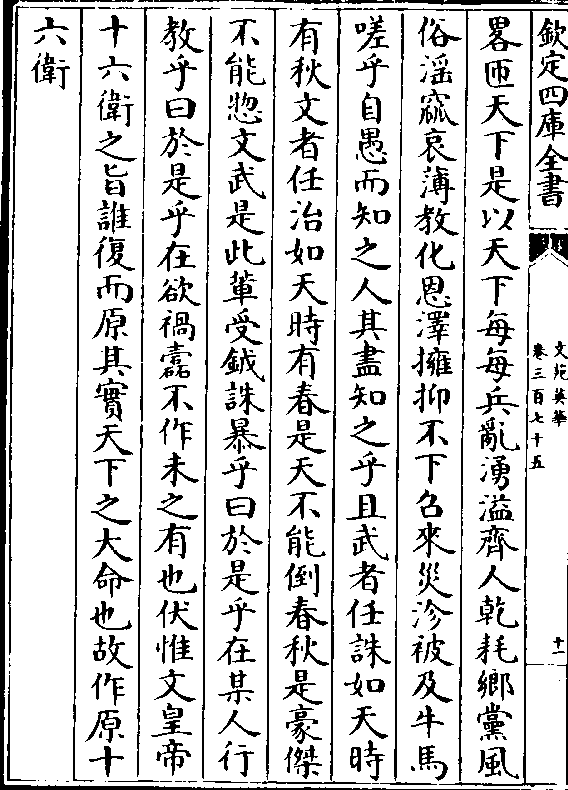 欽定四庫全書
文苑英華
卷三百七十五
十一
畧匝天下是以天下每每兵亂湧溢齊人乾耗鄉黨風
俗淫窳衰薄教化恩澤擁抑不下召來災沴被及牛馬
嗟乎自愚而知之人其盡知之乎且武者任誅如天時
有秋文者任治如天時有春是天不能倒春秋是豪傑
不能惣文武是此軰受鉞誅暴乎曰於是乎在某人行
教乎曰於是乎在欲禍蠹不作未之有也伏惟文皇帝
十六衛之旨誰復而原其實天下之大命也故作原十
六衛